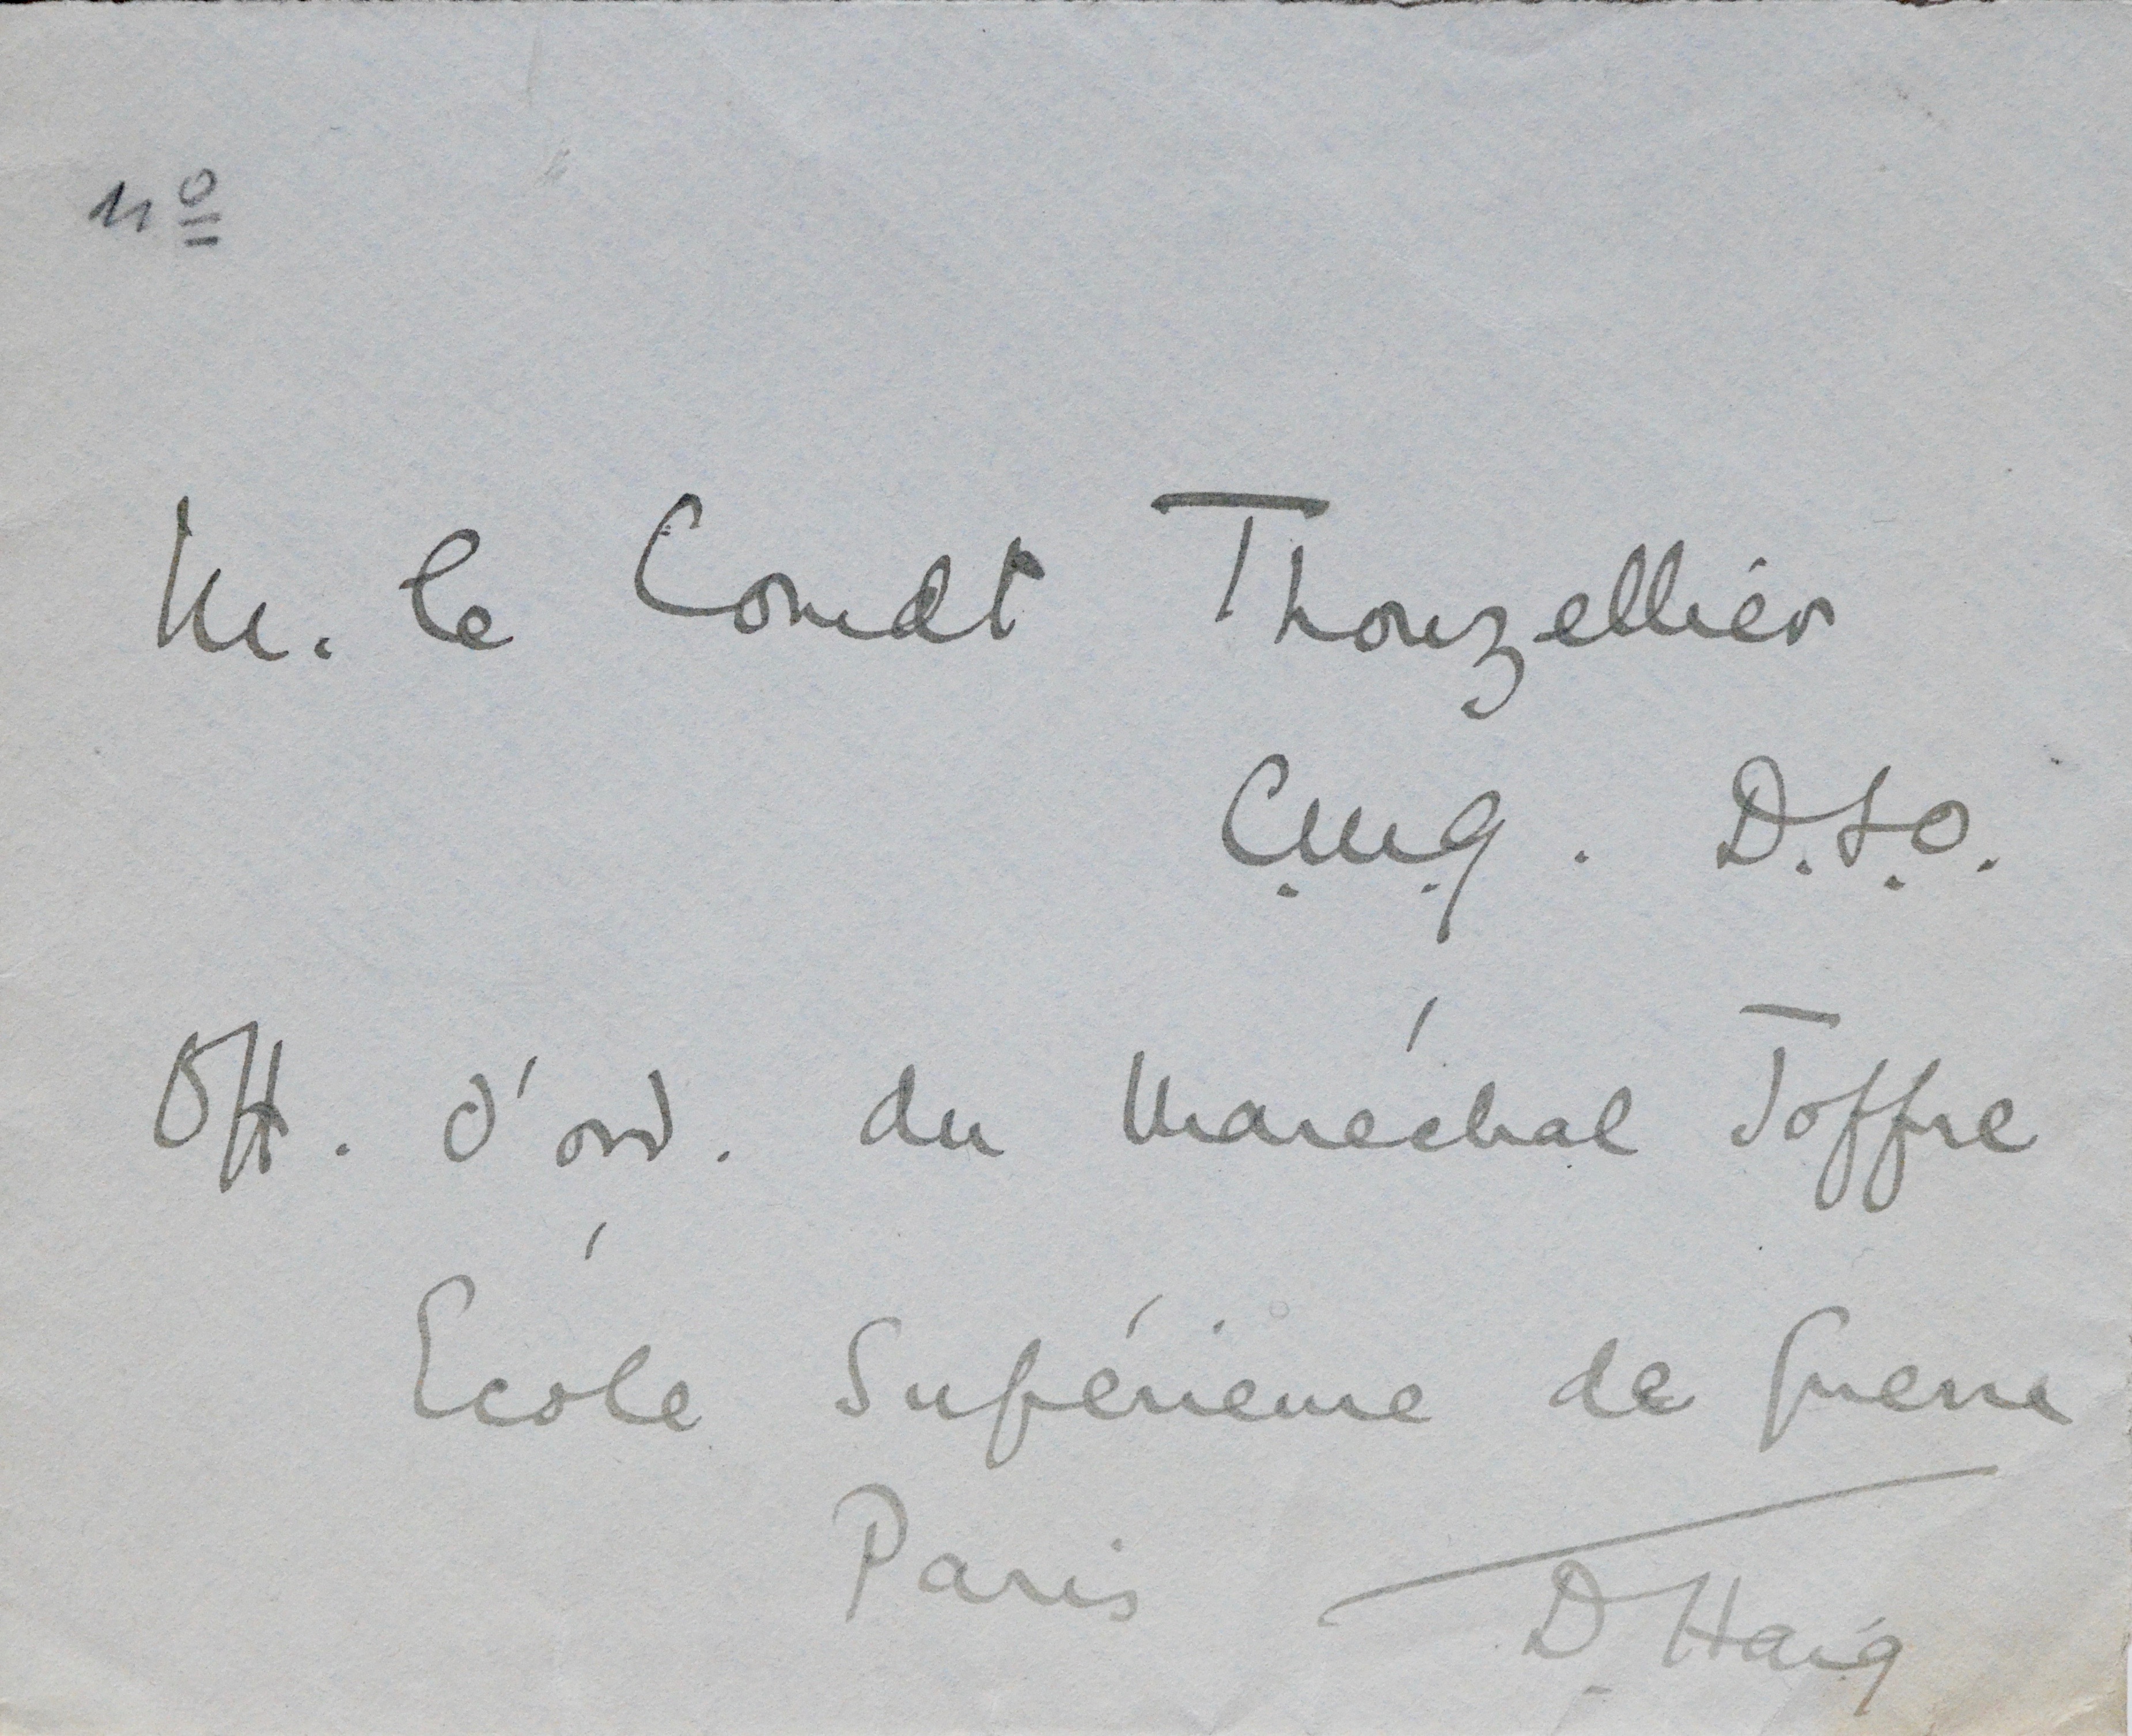 nº
M. le Comdt Thouzellier
C.M.G. D.S.O.
Off. d'ord. du Maréchal Joffre
École Supérieure de Guerre
Paris
D. Haig